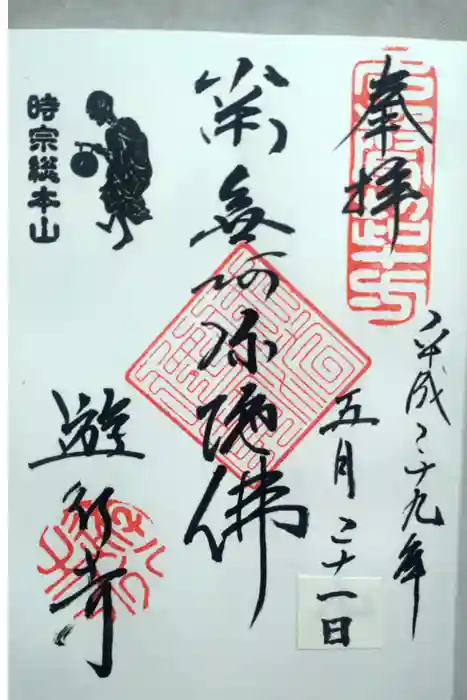 奉拝
平成二十九年
五月二十一日
南無阿弥陀佛
時宗総本山
遊行寺